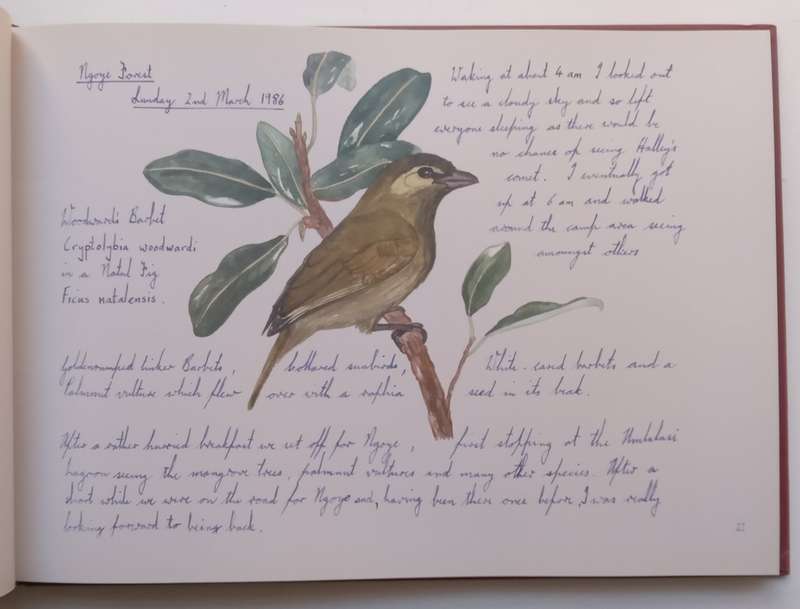 Ngoye Forest
Sunday 2nd March 1986
Waking at about 4 am I looked out
to see a cloudy sky and so left
everyone sleeping as there would be
no chance of seeing Halley's
comet. I eventually got
up at 6 am and walked
around the camp area seeing
amongst others
Woodwards Barbet
Cryptolybia woodwardi
in a Natal Fig
Ficus natalensis.
Goldenrumped tinker Barbets, collared sunbirds, White-eared barbets and a
Palmnut vulture which flew over with a raphia seed in its beak.
After a rather hurried breakfast we set off for Ngoye, first stopping at the Umlalazi
lagoon seeing the mangrove trees, palmnut vultures and many other species. After a
short while we were on the road for Ngoye and, having been there once before, I was really
looking forward to being back.